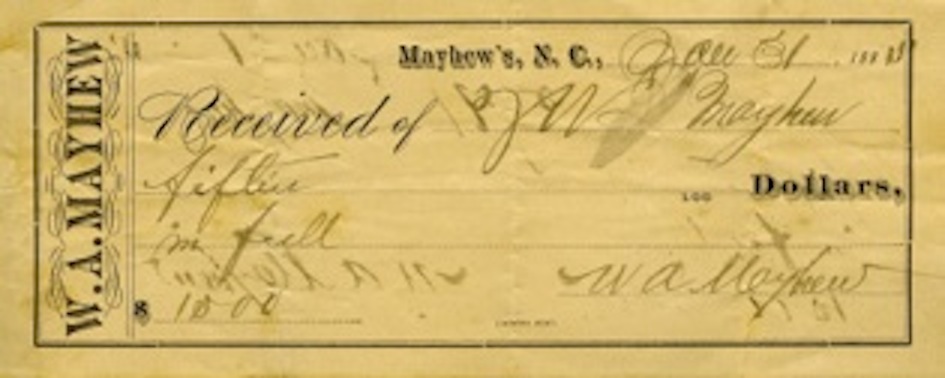 W. A. MAYHEW
Mayhew's, N. C., Jan 31 188
Received of J W Mayhew
fiftein
100 Dollars,
in full
W A Mayhew
$ 15 00